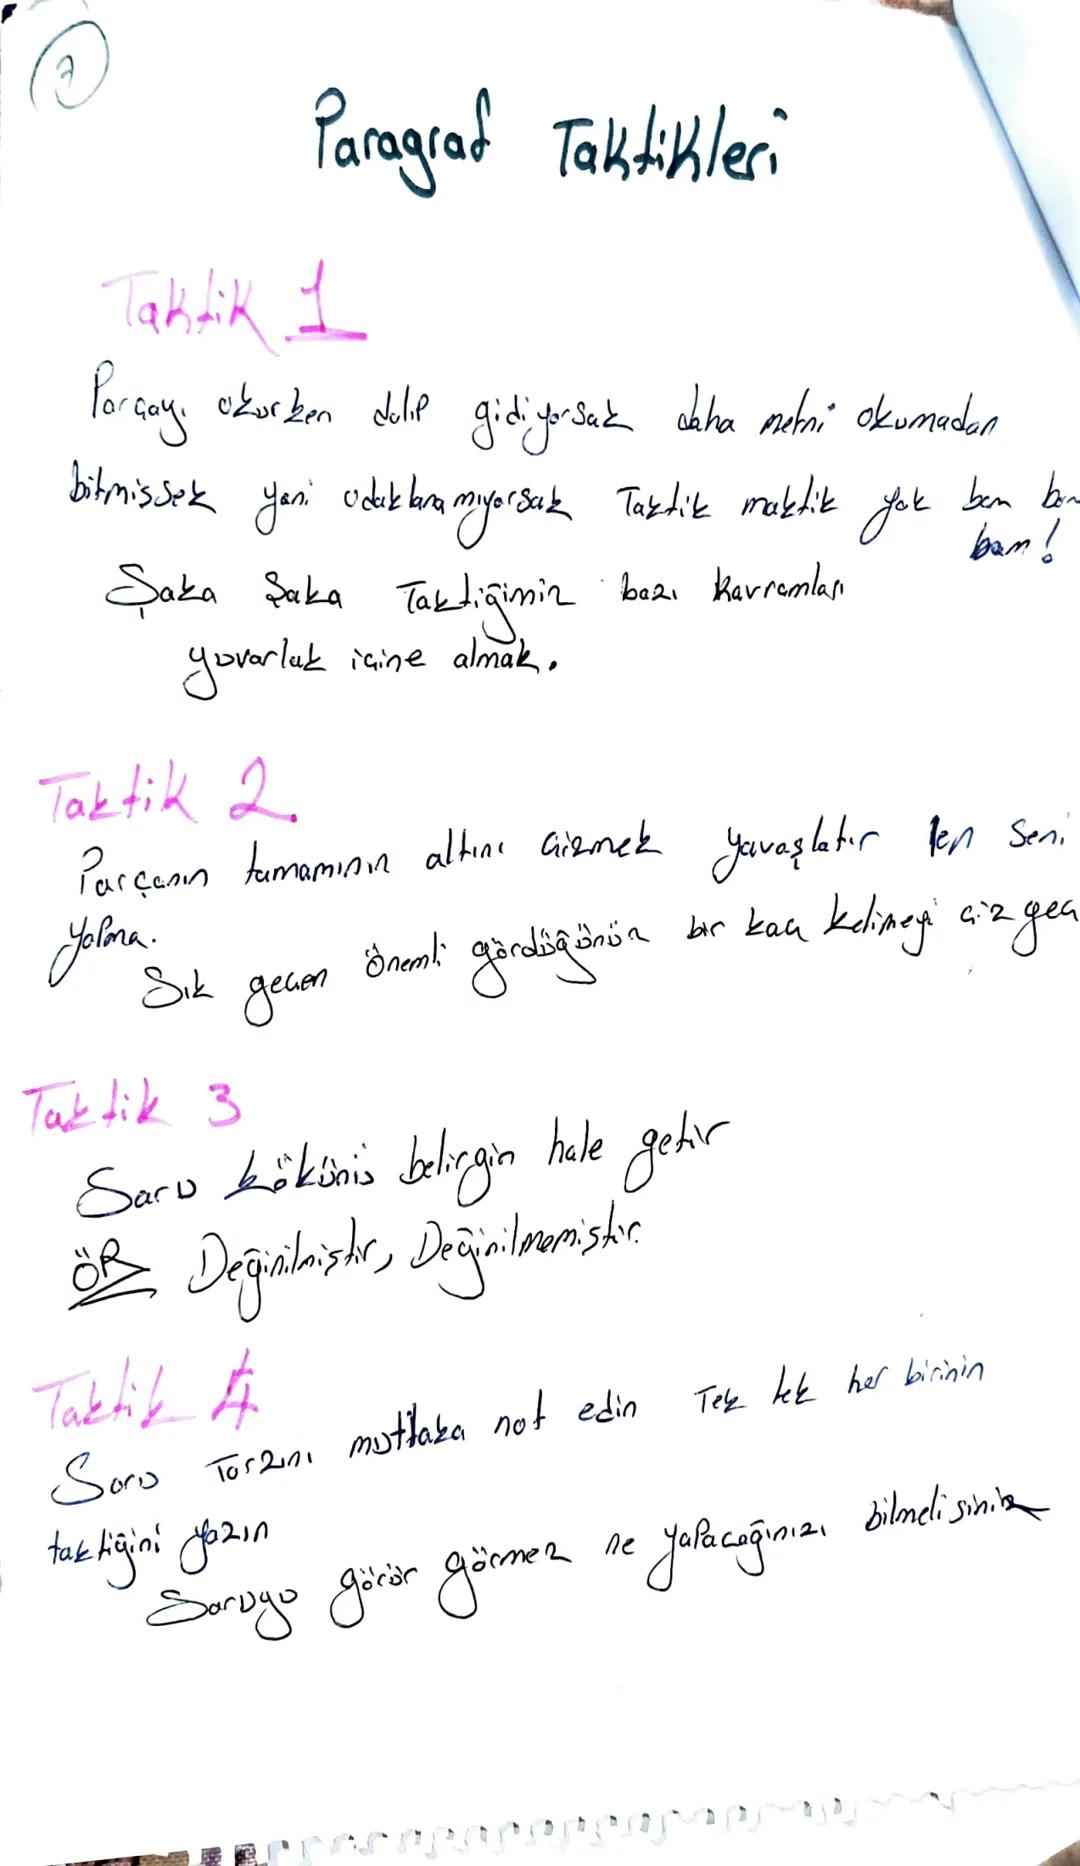 7
Paragraf Taktikleri
Taktik 1
Parçayı okurken dalıp gidiyorsak daha metni okumadan
bitmissek yani odaklanamıyorsak Taktik maktik yok bam bam
bam!
Şaka Şaka Taktiğimiz bazı kavramları
yuvarlak içine almak.
Taktik 2
Parçanın tamamının altını çizmek yavaşlatır len seni
yapma.
Sık geçen önemli gördüğünün bir kaç kelimeyi çiz geç
Taktik 3
Soru kökünü belirgin hale getir
ÖR Değinilmiştir, Değinilmemiştir.
Taktik 4
Soru Tarzını mutlaka not edin Tek tek her birinin
taktiğini yazın
Soruyu görür görmez ne yapacağınızı bilmelisiniz